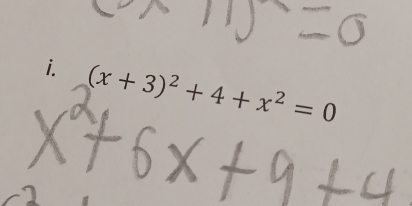 = 0
i. (x + 3)² + 4 + x² = 0
x² + 6x + 9 + 4